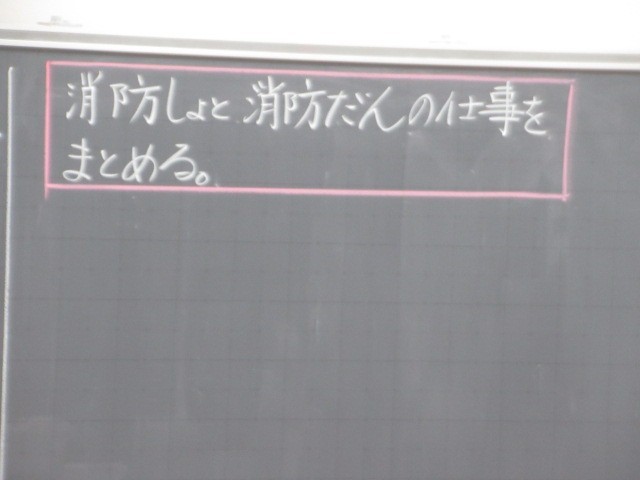 消防しょと消防だんの仕事を
まとめる。